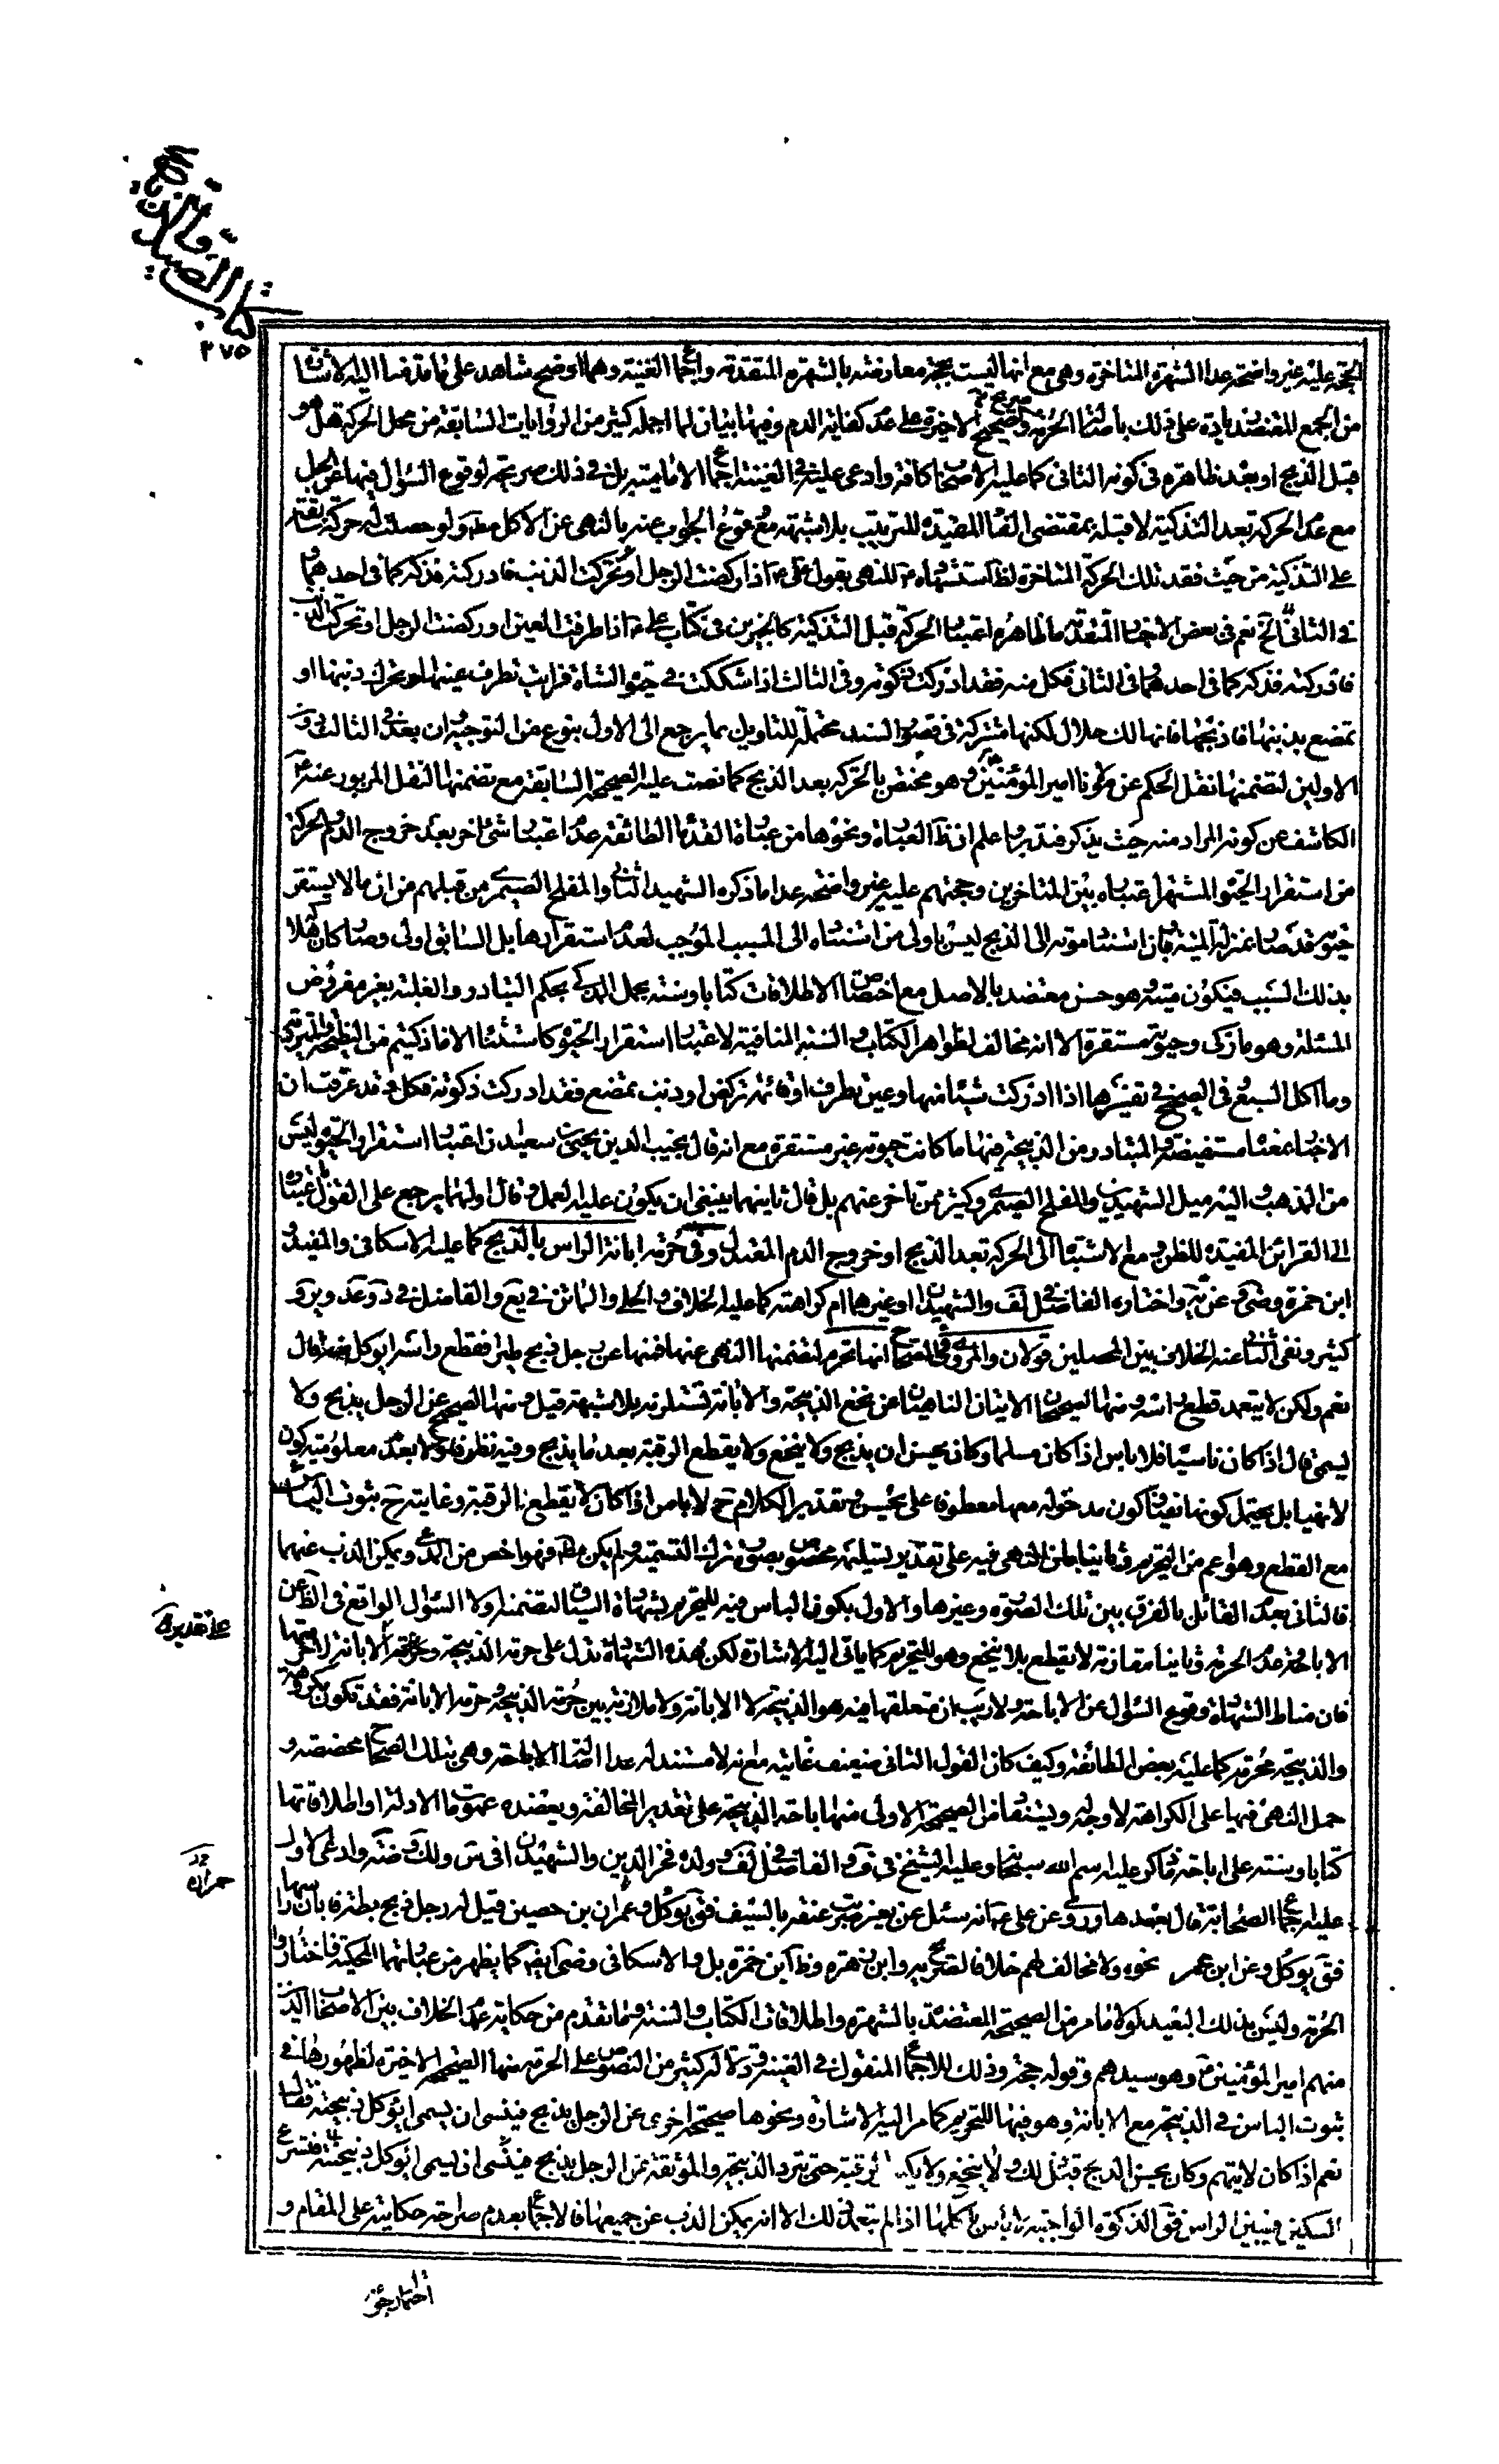 كتاب الصيد والذبايح
٢٧٥
الحجة عليه غير واضحة عدا الشهرة المتاخرة وهى مع انها ليست بحجة معارضة بالشهرة المتقدمة واجماع الغنية وهما اوضح شاهد على ما قدمنا اليه الاشارة
من الجمع المعتضد زيادة على ذلك باصالة الحرمة وصريح الصحيح الاخيرة على عدم كفاية الدم وفيها بيان لما اجمله كثير من الروايات السابقة من محل الحركة هل هو
قبل الذبح او بعد ظاهرة فى كونه الثانى كما عليه الاصحاب كافة وادعى عليه فى الغنية اجماع الامامية بل فى ذلك صريحة لوقوع السؤال فيها عن الرجل
مع عدم الحركة بعد التذكية لا قبله بمقتضى الفاء المفيدة للترتيب بلا شبهة مع وقوع الجواب عنه بالنهى عن الاكل مط ولو حصلت له حركة سابقة
على التذكية من حيث فقد تلك الحركة المتاخرة لظ استشهاده للنهى بقول على ع اذا ركضت الرجل او تحركت الذنب فادركته فذكه كما فى احدهما
فى الثانى الخ نعم فى بعض الاخبار المتقدمة ما ظاهره اعتبار الحركة قبل التذكية كالخبرين فى كتاب على ع اذا طرفت العين او ركضت الرجل او تحركت الذنب
فادركته فذكه كما فى احدهما فى الثانى فكل منه فقد ادركت ذكوته وفى الثالث اذا شككت فى حيوة الشاة فرايتها تطرف عينها او تحرك ذنبها او
تمصع بذنبها فاذبحها فانها لك حلال لكنها مشتركة فى قصور السند محتملة للتاويل بما يرجع الى الاول بنوع من التوجيه ان بعد فى الثالث دون
الاولين لتضمنهما نقل الحكم عن مولانا امير المؤمنين وهو مختص بالحركة بعد الذبح كما نصت عليه الصحيحة السابقة مع تضمنها النقل المزبور عنه ع
الكاشف عن كونه المراد منه حيث يذكر فتدبر واعلم ان ظ العبارة ونحوها من عبارات القدماء الطائفة عدم اعتبار شئ اخر بعد خروج الدم والحركة
من استقرار الحيوة المشتهر اعتباره بين المتاخرين وحجتهم عليه غير واضحة عدا ما ذكره الشهيد الثانى والمفلح الصيمرى من قبلهم من ان ما لا يستقر
حيوته قد صار بمنزلة الميتة فان استناد موته الى الذبح ليس باولى من استناده الى المسبب الموجب لعدم استقرارها بل السابق اولى وصار كان هلاكه
بذلك السبب فيكون ميتة وهو حسن معتضد بالاصل مع اختصاص الاطلاقات كتابا وسنة بحل المذكى بحكم التبادر والغلبة بغير مفروض
المسئلة وهو ما زكى وحيوته مستقرة الا انه مخالف لظواهر الكتاب والسنة المنافية لاعتبار استقرار الحيوة كاستثناء الا ما ذكيتم من النطيحة والمتردية
وما اكل السبع فى الصحيح فى تفسيرها اذا ادركت شيئا منها وعين تطرف او قائمة تركض او ذنب تمصع فقد ادركت ذكوته فكل وقد عرفت ان
الاخبار بمعناه مستفيضة والمتبادر من الذبيحة فيها ما كانت حيوته غير مستقرة مع انه قال نجيب الدين يحيى بن سعيد ان اعتبار استقرار الحيوة ليس
من المذهب واليه ميل الشهيدين والمفلح الصيمرى وكثير ممن تاخر عنهم بل قال ثانيهما ينبغى ان يكون عليه العمل وقال اولهما يرجع على القول باعتباره
الى القرائن المفيدة للظن ومع الاشتباه الى الحركة بعد الذبح او خروج الدم المعتدل وفى حرمة ابانة الراس بالذبح كما عليه الاسكافى والمفيد و
ابن حمزة وضى وعن ية واختاره الفاضل فى لف والشهيدان او غيرهما ام كراهته كما عليه الخلاف والحلى والماتن فى يع والفاضل فى د وعد وير و
كثير ونفى الثانى عنه الخلاف بين المحصلين قولان والمروى فى الصحاح انها تحرم لتضمنها النهى عنها فمنها عن رجل ذبح طيرا فقطع راسه ايوكل منه قال
نعم ولكن لا يتعمد قطع راسه ومنها الصحيحان الاتيان الناهيان عن نخع الذبيحة والابانة تستلزمه بلا شبهة قيل ومنها الصحيح عن الرجل يذبح ولا
يسمى قال اذا كان ناسيا فلا باس اذا كان مسلما وكان يحسن ان يذبح ولا ينخع ولا يقطع الرقبة بعد ما يذبح وفيه نظر فاولا بعدم معلومية كون
لا نهيا بل يحتمل كونها نفيا وكون مدخوله معها معطوفا على يحسن وتقدير الكلام ح لا باس اذا كان لا يقطع الرقبة وغايته ح ثبوت الباس
مع القطع وهو اعم من التحريم وثانيا بان النهى فيه على تقدير تسليمه مخصوص بصورة ترك التسمية ولم يكن مط فهو اخص من المدعى ويمكن الذب عنهما
فالثانى بعدم القائل بالفرق بين تلك الصورة وغيرها والاول بكون الباس فيه للتحريم بشهادة السياق لتضمنه اولا السؤال الواقع فى الظ عن
الاباحة وعدم الحرمة وثانيا مقارنة لا يقطع بلا ينخع وهو للتحريم كما ياتى اليه الاشارة لكن هذه الشهادة تدل على حرمة الذبيحة
فان مناط الشهادة وقوع السؤال عن الاباحة ولا ريب ان متعلقها فيه هو الذبيحة لا الابانة ولا ملازمة بين حرمة الذبيحة وحرمة الابانة فقد تكون مكروهة
والذبيحة محرمة كما عليه بعض الطائفة وكيف كان القول الثانى ضعيف غايته مع انه لا مستند له عدا اصالة الاباحة وهى بتلك الصحاح مخصصة و
حمل النهى فيها على الكراهة لا وجه له ويستفاد من الصحيحة الاولى منها اباحة الذبيحة على تقدير المخالفة ويعضده عمومات الادلة او اطلاقاتها
كتابا وسنة على اباحة ما ذكر عليه اسم الله سبحانه وعليه الشيخ فى ف والفاضل فى لف وولده فخر الدين والشهيدان فى س ولك وضة وادعى الاول
عليه اجماع الصحابة قال بعدها وروى عن على ع انه سئل عن بعير ضرب عنقه بالسيف فق يوكل وعمران بن حصين قيل له رجل ذبح بطة فابان راسها
فق يوكل وعن ابن عمر نحوه ولا مخالف لهم خلافا لصريح ية وابن زهرة وظ ابن حمزة بل والاسكافى وضى ايضا كما يظهر من عبارتهما المحكية فاختاروا
الحرمة وليس بذلك البعيد لولا ما مر من الصحيحة المعتضدة بالشهرة واطلاقات الكتاب والسنة وما تقدم من حكاية عدم الخلاف بين الاصحاب الذين
منهم امير المؤمنين وهو سيدهم وقوله حجة وذلك للاجماع المنقول فى الغنية ودلالة كثير من النصوص على الحرمة منها الصحيحة الاخيرة لظهورها فى
ثبوت الباس فى الذبيحة مع الابانة وهو فيها للتحريم كما مر اليه الاشارة ونحوها صحيحة اخرى عن الرجل يذبح فينسى ان يسمى ايوكل ذبيحته فقال
نعم اذا كان لا يتهم وكان يحسن الذبح قبل ذلك ولا ينخع ولا يكسر الرقبة حتى تبرد الذبيحة والموثقة عن الرجل يذبح فينسى ان يسمى ايوكل ذبيحته فتسرع
السكين فيبين الراس فق الذكوة الواجبة لا باس باكلها اذا لم يتعمد ذلك الا انه يمكن الذب عن جميعها فالاجماع بعدم صراحة حكايته على المقام و
على تقديره
احتمال رجوعه